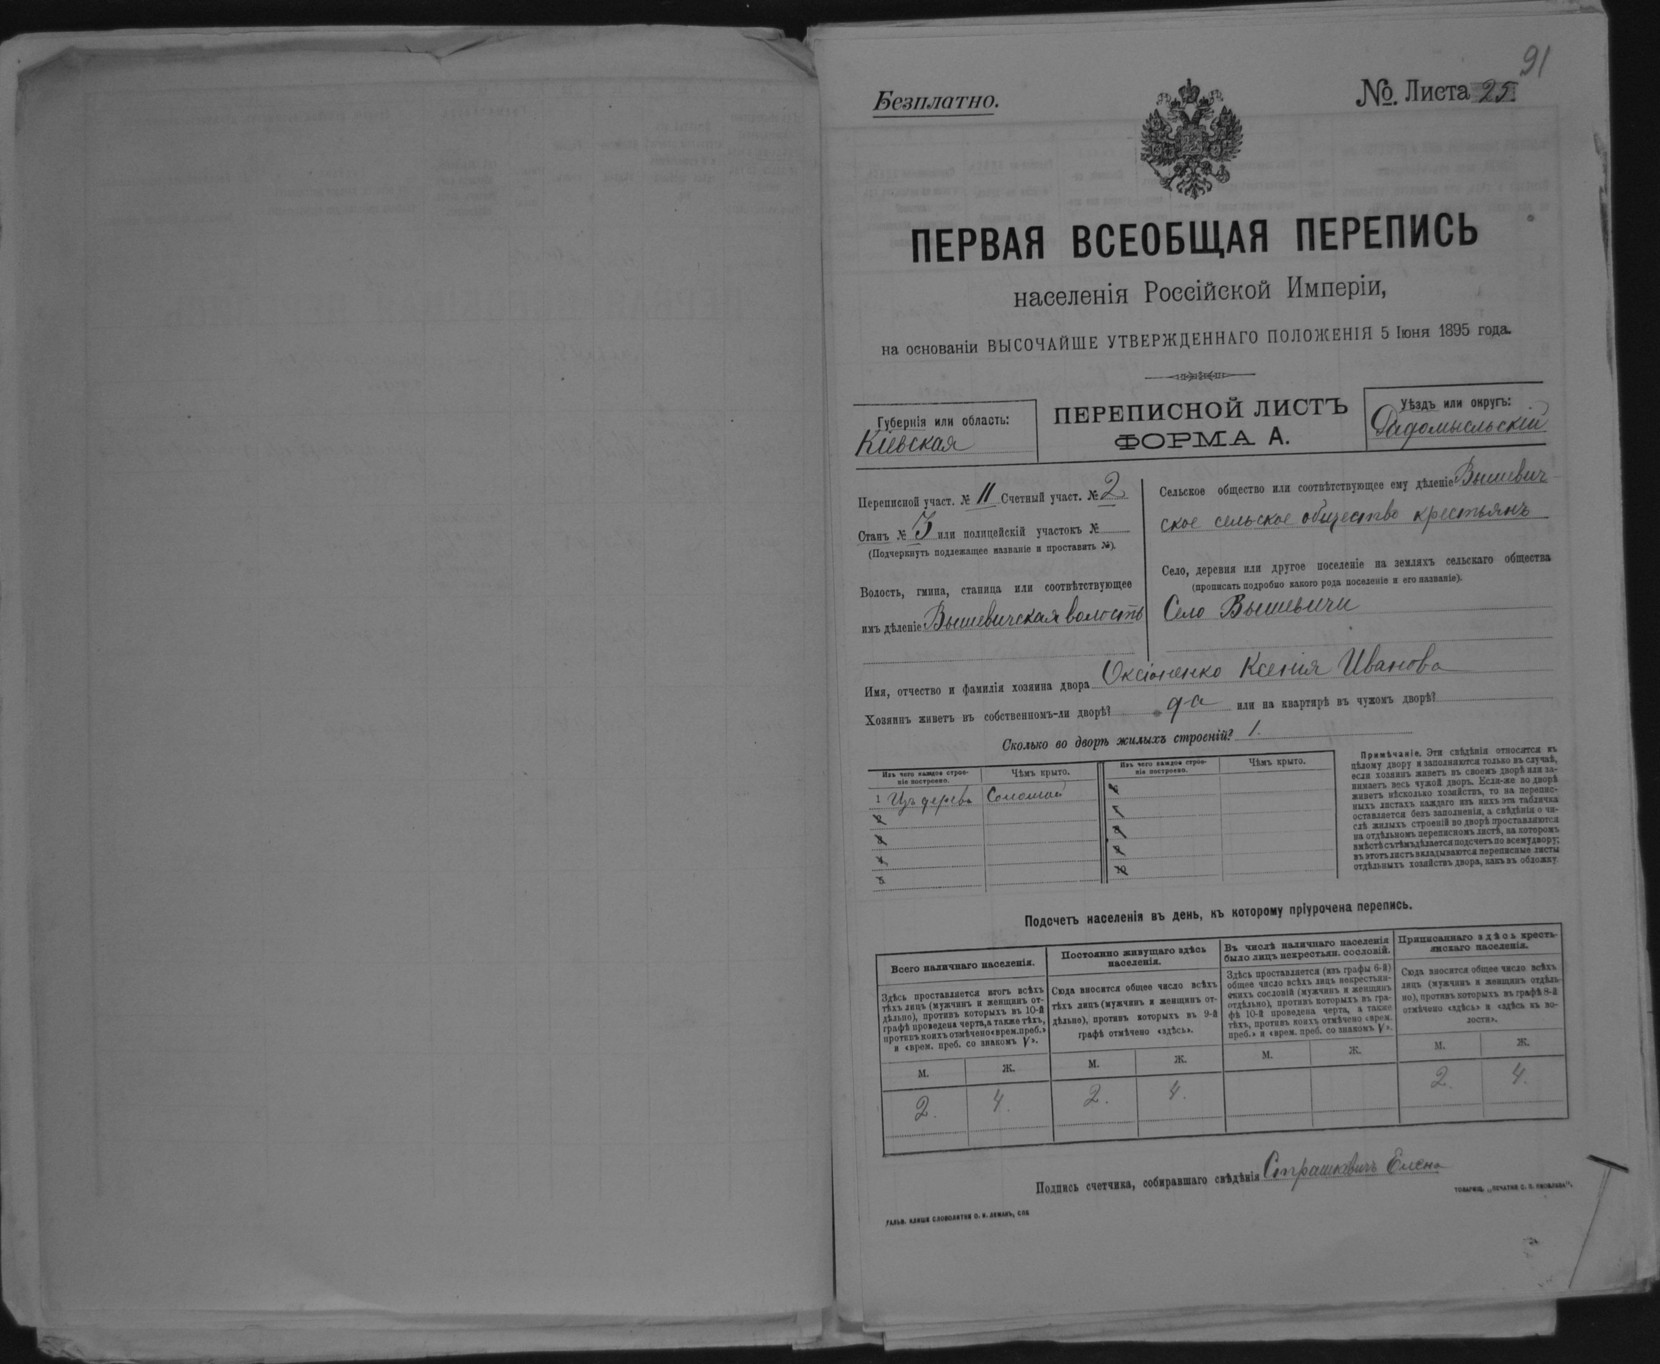 91
Безплатно.
№. Листа 25
ПЕРВАЯ ВСЕОБЩАЯ ПЕРЕПИСЬ
населенія Россійской Имперіи,
на основаніи ВЫСОЧАЙШЕ УТВЕРЖДЕННАГО ПОЛОЖЕНІЯ 5 Іюня 1895 года.
Губернія или область:
Кіевская
ПЕРЕПИСНОЙ ЛИСТЪ
ФОРМА А.
Уѣздъ или округъ:
Радомысльскій
Переписной участ. № 11 Счетный участ. № 2
Станъ № 3 или полицейскій участокъ №
(Подчеркнуть подлежащее названіе и проставить №).
Волость, гмина, станица или соотвѣтствующее
имъ дѣленіе Вышевичская волость
Сельское общество или соотвѣтствующее ему дѣленіе Вышевич-
ское сельское общество крестьянъ
Село, деревня или другое поселеніе на земляхъ сельскаго общества
(прописать подробно какого рода поселеніе и его названіе).
Село Вышевичи
Имя, отчество и фамилія хозяина двора Оксіоненко Ксенія Иванова
Хозяинъ живетъ въ собственномъ-ли дворѣ? да или на квартирѣ въ чужомъ дворѣ?
Сколько во дворѣ жилыхъ строеній? 1.
Изъ чего каждое строе-
ніе построено.
Чѣмъ крыто.
Изъ чего каждое строе-
ніе построено.
Чѣмъ крыто.
1 Изъ дерева Соломой
6
2
7
3
8
4
9
5
10
Примѣчаніе. Эти свѣдѣнія относятся къ
цѣлому двору и заполняются только въ случаѣ,
если хозяинъ живетъ въ своемъ дворѣ или за-
нимаетъ весь чужой дворъ. Если-же во дворѣ
живетъ нѣсколько хозяйствъ, то на перепис-
ныхъ листахъ каждаго изъ нихъ эта табличка
оставляется безъ заполненія, а свѣдѣнія о чи-
слѣ жилыхъ строеній во дворѣ проставляются
на отдѣльномъ переписномъ листѣ, на которомъ
вмѣстѣ съ тѣмъ дѣлается подсчетъ по всему двору;
въ этотъ листъ вкладываются переписные листы
отдѣльныхъ хозяйствъ двора, какъ въ обложку.
Подсчетъ населенія въ день, къ которому пріурочена перепись.
Всего наличнаго населенія.
Здѣсь проставляется итогъ всѣхъ
тѣхъ лицъ (мужчинъ и женщинъ от-
дѣльно), противъ которыхъ въ 10-й
графѣ проведена черта, а также тѣхъ,
противъ коихъ отмѣчено «врем. преб.»
и «врем. преб. со знакомъ V».
Постоянно живущаго здѣсь
населенія.
Сюда вносится общее число всѣхъ
тѣхъ лицъ (мужчинъ и женщинъ от-
дѣльно), противъ которыхъ въ 9-й
графѣ отмѣчено «здѣсь».
Въ числѣ наличнаго населенія
было лицъ некрестьян. сословій.
Здѣсь проставляется (изъ графы 6-й)
общее число всѣхъ лицъ некрестьян-
скихъ сословій (мужчинъ и женщинъ
отдѣльно), противъ которыхъ въ гра-
фѣ 10-й проведена черта, а также
тѣхъ, противъ коихъ отмѣчено «врем.
преб.» и «врем. преб. со знакомъ V».
Приписаннаго здѣсь кресть-
янскаго населенія.
Сюда вносится общее число всѣхъ
лицъ (мужчинъ и женщинъ отдѣль-
но), противъ которыхъ въ графѣ 8-й
отмѣчено «здѣсь» и «здѣсь въ во-
лости».
М. Ж. М. Ж. М. Ж. М. Ж.
2. 4. 2. 4. 2. 4.
Подпись счетчика, собиравшаго свѣдѣнія Страшкевичъ Елена
ТОВАРИЩ. „ПЕЧАТНЯ С. П. ЯКОВЛЕВА“.
ГАЛЬВ. КЛИШЕ СЛОВОЛИТНИ О. И. ЛЕМАНЪ, СПБ